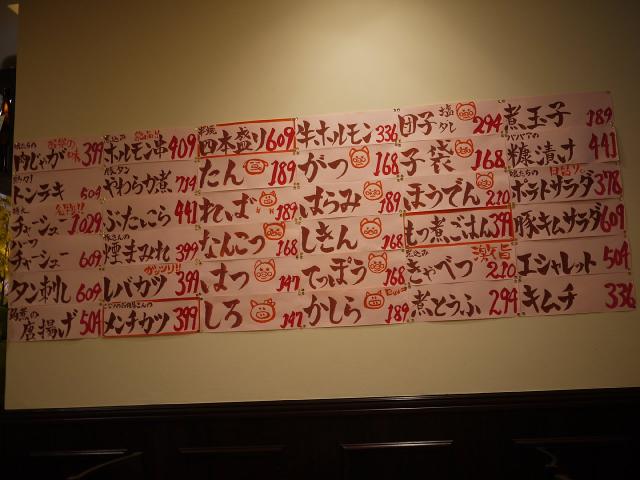 肉じゃが 399
トンテキ 504
チャーシュー 1029
ハーフ
チャーシュー 609
タン刺し 609
唐揚げ 504
煮込み
ホルモン串 409
やわらか煮 714
ぶたっころ 441
豚さんの
煙まみれ 399
ガッツリ!!
レバカツ 399
メンチカツ 399
串焼
四本盛り 609
たん 189
れいば 189
なんこつ 168
はつ 147
しろ 147
牛ホルモン 336
がつ 168
はらみ 189
しきん 168
てっぽう 168
かしら 189
団子 塩 タレ 294
子袋 168
ほうでん 210
もつ煮ごはん 399
煮込み 激旨
きゃべつ 210
煮とうふ 294
煮玉子 189
ババアの
糠漬け 441
自慢!!
ポテトサラダ 378
豚キムサラダ 609
エシャレット 504
キムチ 336